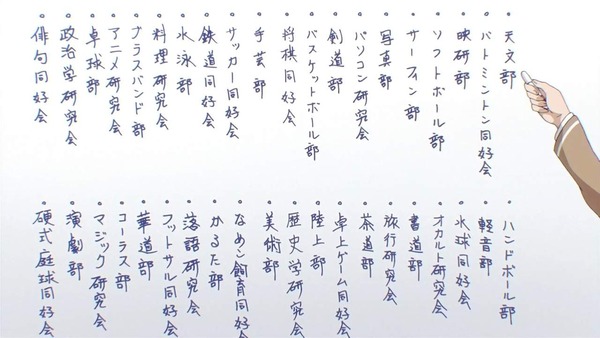 ・天文部
・バトミントン同好会
・映研部
・ソフトボール部
・サーフィン部
・写真部
・パソコン研究会
・剣道部
・バスケットボール部
・将棋同好会
・手芸部
・サッカー同好会
・鉄道同好会
・水泳部
・料理研究会
・ブラスバンド部
・アニメ研究会
・卓球部
・政治学研究会
・俳句同好会
・ハンドボール部
・軽音部
・水球同好会
・オカルト研究会
・書道部
・旅行研究会
・茶道部
・卓上ゲーム同好会
・陸上部
・歴史学研究会
・美術部
・なめこ飼育同好会
・かるた部
・落語研究会
・フットサル同好会
・華道部
・コーラス部
・マジック研究会
・演劇部
・硬式庭球同好会